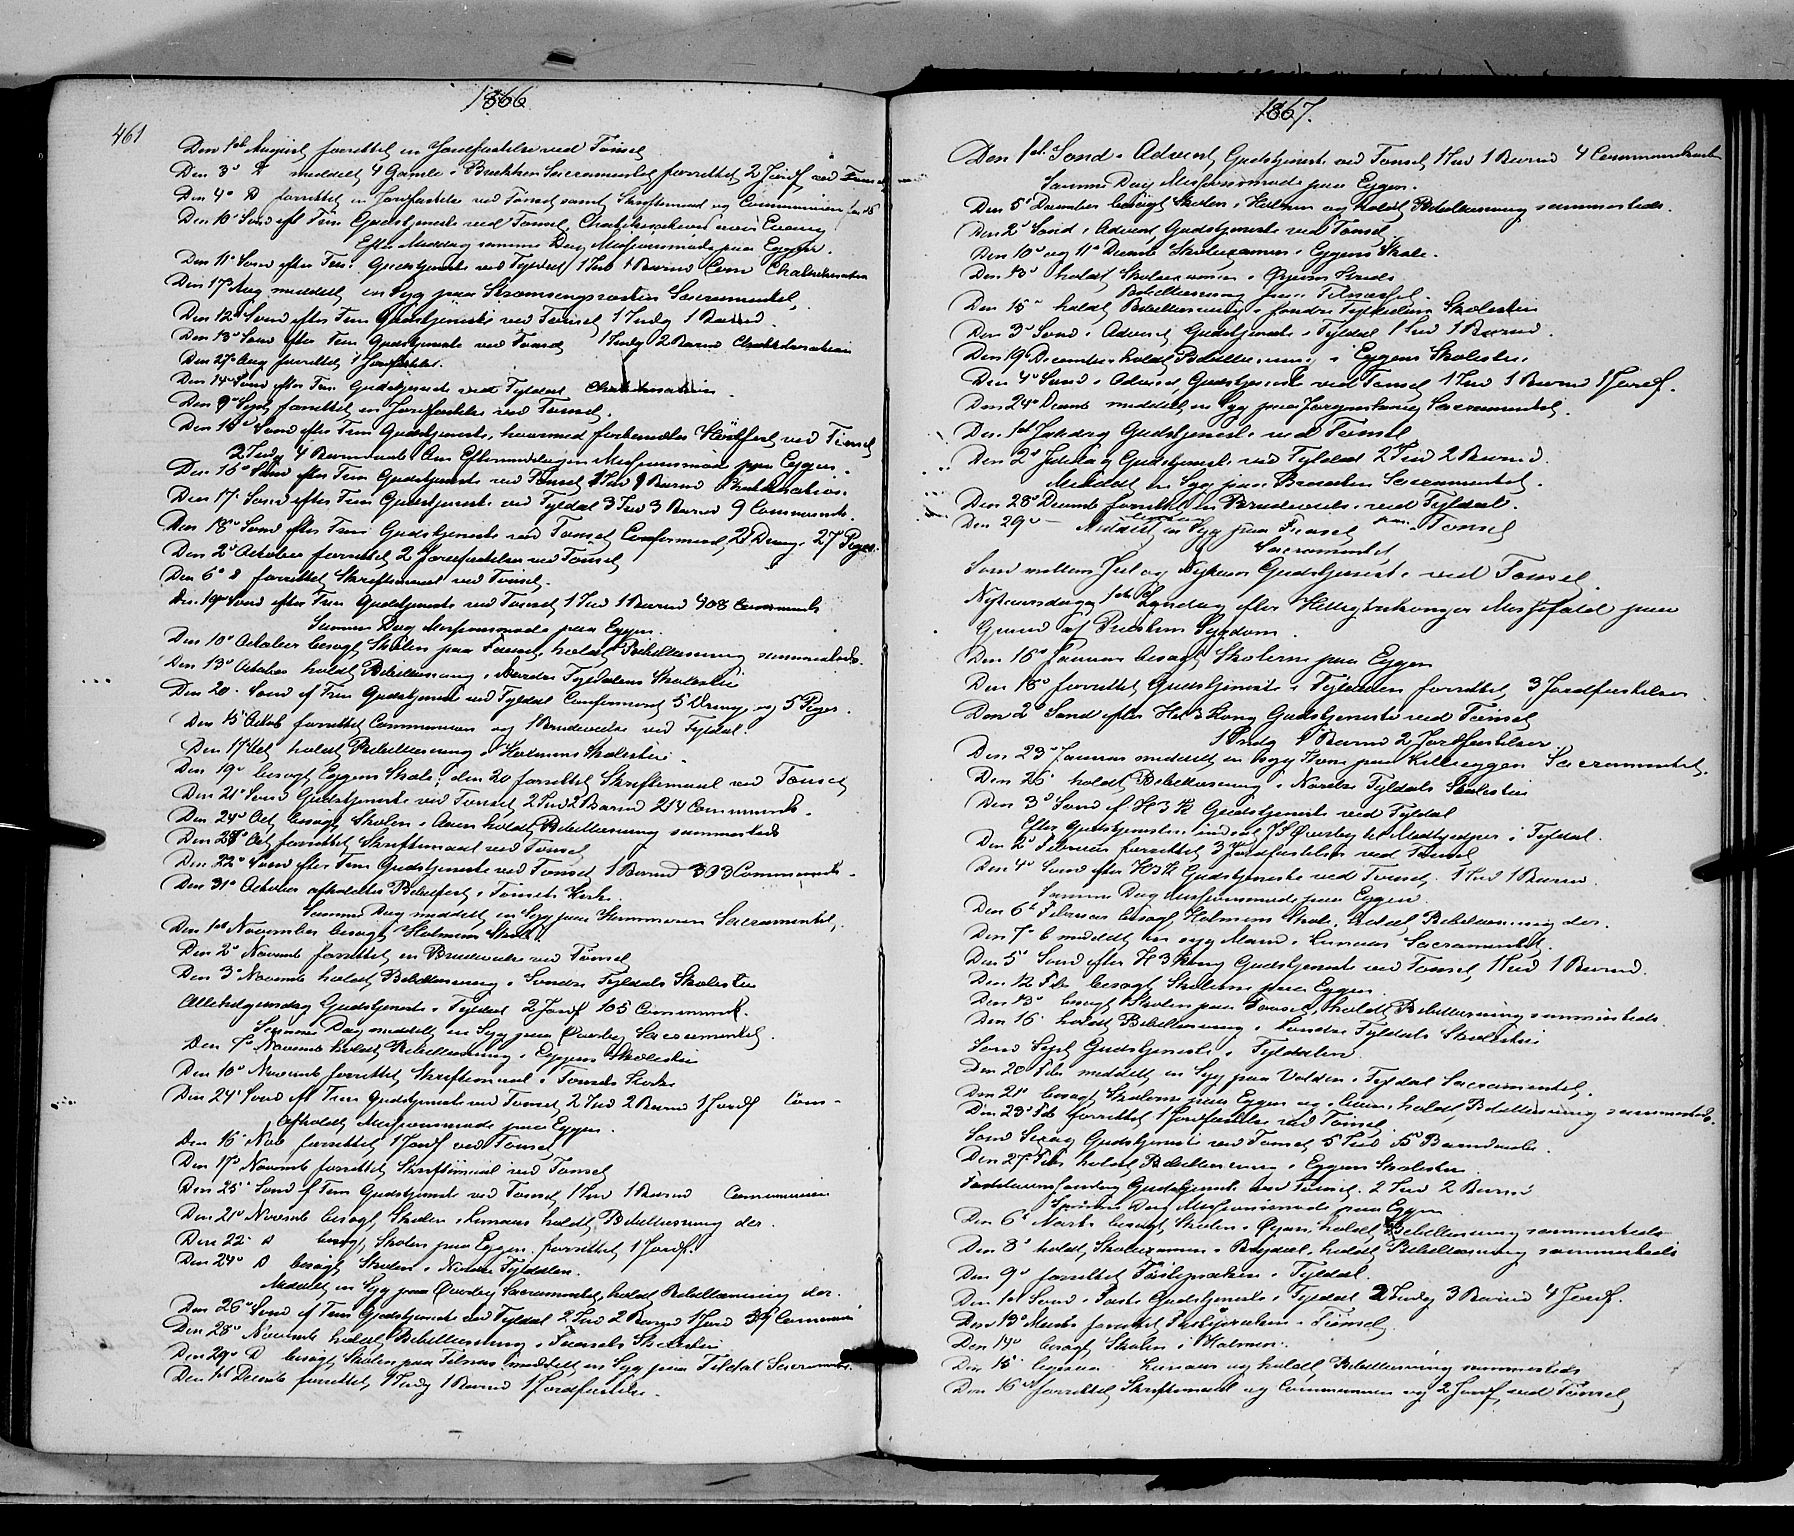 1866.
461
Den 1st August forrettet en Jordfæstelse ved Tönset
Den 3d D meddelt 4 Gamle i Brækken Sacramentet, forrettet 2 Jordf ved Tönset
Den 4d D forrettet en Jordfæstelse ved Tönset samt Skriftemaal og Communion
Den 10d Sönd eft Trin Gudstjeneste ved Tönset, Chatekisation
Efter Middag samme Dag Missionsmøde paa Eggen.
Den 11d Sönd efter Trin: Gudstjeneste ved Tyldal 1 Ind 1 Barnd Com Chatekisation
Den 17d Aug meddelt en Syg paa Sacramentet,
Den 12d Sönd efter Trin Gudstjeneste ved Tönset 1 Indg 1 Barnd.
Den 13d Sönd efter Trin Gudstjeneste ved Tönset 1 Indg 2 Barnd Chatekisation
Den 27d Aug forrettet 1 Jordfæstelse.
Den 14d Sönd efter Trin Gudstjeneste ved Tyldal Chatekisation.
Den 9d Sept forrettet en Jordfæstelse ved Tönset.
Den 15d Sönd efter Trin Gudstjeneste, hvormed forbandtes Höstfest ved Tönset
2 Indg 4 Barnd samt Om Eftermiddagen Missionsmøde paa Eggen.
Den 16d Sönd efter Trin Gudstjeneste ved Tönset Ind Barnd Chatekisation.
Den 17d Sönd efter Trin Gudstjeneste ved Tyldal 3 Ind 3 Barnd 9 Communik.
Den 18d Sönd efter Trin Gudstjeneste ved Tönset Confirmeret, 21 Dreng. 27 Piger.
Den 2d October forrettet 2 Jordfæstelser ved Tönset
Den 6d D forrettet Skriftemaal ved Tönset.
Den 19de Sönd efter Trin Gudstjeneste ved Tönset 1 Ind 1 Barnd 408 Communik
Samme Dag Missionsmøde paa Eggen.
Den 10d October besøgt Skolen paa Tönset, holdt Bibellæsning sammesteds.
Den 13d October holdt Bibellæsning i Nordre Tyldalens Skolestue
Den 20d Sönd ef Trin Gudstjeneste ved Tyldal Confirmeret 5 Dreng. og 5 Piger.
Den 15 Octob forrettet Communion og 1 Brudevielse ved Tyldal.
Den 17 Oct. holdt Bibellæsning i Holmens Skolestue.
Den 19d besøgt Eggens Skole; den 20 forrettet Skriftemaal ved Tönset
Den 21d Sönd Gudstjeneste ved Tönset, 2 Ind 2 Barnd 214 Communik.
Den 24d Oct, besøgt Skolen i Auen holdt Bibellæsning sammesteds
Den 28d Oct forrettet Skriftemaal ved Tönset
Den 22d Sönd efter Trin Gudstjeneste ved Tönset, 1 Barnd 303 Communik.
Den 31d October afholdtes Bibelfest i Tönset Kirke.
Samme Dag meddelt en Syg paa Sacramentet,
Den 1ste November besøgt Holmens Skole.
Den 2d Novemb forrettet en Brudevielse ved Tönset
Den 3d Novemb holdt Bibellæsning i Söndre Tyldals Skolestue
Allehelgensdag Gudstjeneste i Tyldal 2 Jordf 105 Communik.
Samme Dag meddelt en Syg paa Øvreby Sacramentet.
Den 7d Novemb holdt Bibellæsning i Eggens Skolestue
Den 10d Novemb forrettet Skriftemaal i Tönset Kirke
Den 24d Sönd ef Trin Gudstjeneste ved Tönset, 2 Ind 2 Barnd 1 Jordf Com-
Afholdt Missionsmøde paa Eggen.
Den 16 Nov forrettet 1 Jordf ved Tönset
Den 17d Novemb forrettet Skriftemaal ved Tönset
Den 25d Sönd ef Trin Gudstjeneste ved Tönset, 1 Ind 1 Barnd Communion
Den 21d Novemb besøgt Skolen i holdt Bibellæsning der.
Den 22. D besøgt Skolen paa Eggen. forrettet 1 Jordf.
Den 24d D besøgt Skolen i Nordre Tyldalen.
Meddelt en Syg paa Øvreby Sacramentet, holdt Bibellæsning der.
Den 26d Sönd ef Trin Gudstjeneste ved Tyldal 2 Ind 2 Barnd 1 Jord Communion
Den 28d Novemb holdt Bibellæsning i Skolestue
Den 29d D besøgt Skolen paa Telnæs, meddelt en Syg paa Sacramentet.
Den 1st Decemb forrettet 1 Indg 1 Barnd 1 Jordfæstelse.
1867.
Den 1st. Sönd. Advent, Gudstjeneste ved Tönset, 1 Ind 1 Barnd 4 Communikanter
Samme Dag Missionsmøde paa Eggen.
Den 5d December besøgt Skolen i Holmen og holdt Bibellæsning sammesteds.
Den 2d Sönd i Advent Gudstjeneste ved Tönset.
Den 10d og 11d Decemb Skoleexamen i Eggens Skole.
Den 13d holdt Skoleexamen i Kreds
Bibellæsning paa Telnæset.
Den 15d holdt Bibellæsning i Söndre Tyldalens Skolestue
Den 3d Sönd i Advent, Gudstjeneste i Tyldal 1 Ind 1 Barnd.
Den 19 December holdt Bibellæsning i Eggens Skolestue.
Den 4d Sönd i Advent, Gudstjeneste ved Tönset 1 Ind 1 Barnd 1 Jordf.
Den 24d Decemb meddelt en Syg paa Sacramentet.
Den 1st Juledag Gudstjeneste ved Tönset
Den 2d Juledag Gudstjeneste ved Tyldal 2 Ind 2 Barnd.
Meddelt en Syg paa Sacramentet.
Den 28d Decemb forrettet en Brudevielse ved Tyldal.
Den 29d — Meddelt en Syg paa Tönset
Sacramentet
Sönd mellem Jul og Nytaar Gudstjeneste ved Tönset.
Nytaarsdag, 1ste Söndag efter Helligtrekonger Messefald paa
Grund af Præstens Sygdom.
Den 16d Januar besøgt Skolerne paa Eggen
Den 18d forrettet Gudstjeneste i Tyldalen forrettet, 3 Jordfæstelser
Den 2d Sönd efter Hel 3 Kong Gudstjeneste ved Tönset
1 Indg 1 Barnd 2 Jordfæstelser.
Den 23d Januar meddelt en syg Kone paa Kildeeggen Sacramentet.
Den 25 holdt Bibellæsning i Nordre Tyldals Skolestue
Den 3d Sönd ef H 3 K Gudstjeneste ved Tyldal
Efter Gudstjenesten indsat J S Øvreby til Medhjelper i Tyldal.
Den 2d Februar forrettet 3 Jordfæstelser ved Tönset
Den 4d Sönd efter H 3 K Gudstjeneste ved Tönset. 1 Ind 1 Barnd.
Samme Dag Missionsmøde paa Eggen.
Den 6t Februar besøgt Holmens Skole. holdt Bibellæsning der.
Den 7d meddelt en syg Mand i Sacramentet.
Den 5d Sönd efter H 3 Kong Gudstjeneste ved Tönset, 1 Ind 1 Barnd.
Den 12 Febr besøgt Skolerne paa Eggen.
Den 13d besøgt Skolen paa Tönset, holdt Bibellæsning sammesteds.
Den 16 holdt Bibellæsning i Söndre Tyldals Skolestue
Sönd Sept Gudstjeneste i Tyldalen.
Den 20 Febr meddelt en Syg paa Volden i Tyldal Sacramentet.
Den 21d besøgt Skolerne paa Eggen og i Auen, holdt Bibellæsning sammesteds.
Den 23d Feb forrettet 1 Jordfæstelse ved Tönset
Sönd Sexag Gudstjeneste ved Tönset 5 Ind 5 Barndaab.
Den 27 Febr holdt Bibellæsning i Eggens Skolestue
Fastelavns Söndag Gudstjeneste ved Tönset. 2 Ind 2 Barnd
Samme Dag Missionsmøde paa Eggen
Den 6d Marts besøgt Skolen i Øyan, holdt Bibellæsning sammesteds
Den 8d holdt Skoleexamen i Brydal, holdt Bibellæsning sammesteds
Den 9d forrettet Fasteprædiken i Tyldal.
Den 1st Sönd i Faste Gudstjeneste i Tyldal 2 Indg 3 Barnd 4 Jordf.
Den 13d Marts forrettet Fasteprædiken i Tönset.
Den 14d besøgt Skolen i Holmen.
Den 15 ligesaa og holdt Bibellæsning sammesteds
Den 16d forrettet Skriftemaal og Communion og 2 Jordf, ved Tönset